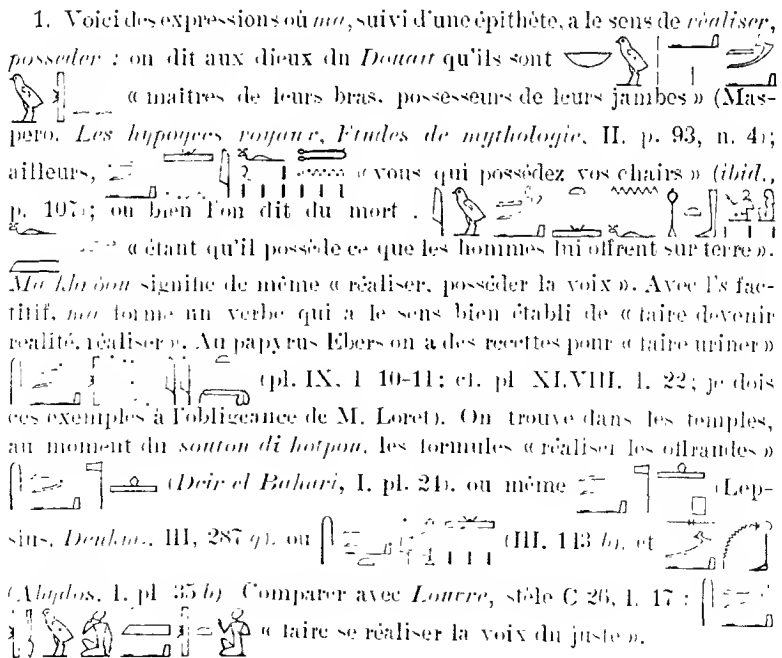 1. Voici des expressions où ma, suivi d'une épithète, a le sens de réaliser,
posséder : on dit aux dieux du Douait qu'ils sont
« maîtres de leurs bras, possesseurs de leurs jambes » (Mas-
pero, Les hypogées royaux, Études de mythologie, II, p. 93, n. 4);
ailleurs, « vous qui possédez vos chairs » (ibid.,
p. 107); ou bien l'on dit du mort :
« étant qu'il possède ce que les hommes lui offrent sur terre ».
Ma khròou signifie de même « réaliser, posséder la voix ». Avec l's fac-
titif, ma forme un verbe qui a le sens bien établi de « faire devenir
réalité, réaliser ». Au papyrus Ebers on a des recettes pour « faire uriner »
(pl. IX, l. 10-11; cf. pl. XLVIII, l. 22; je dois
ces exemples à l'obligeance de M. Loret). On trouve dans les temples,
au moment du souton di hotpou, les formules « réaliser les offrandes »
(Deir el Bahari, I, pl. 24), ou même (Lep-
sius, Denkm., III, 287 g), ou (III, 113 b), et
(Abydos, I, pl. 35 b) Comparer avec Louvre, stèle C 26, l. 17 :
« faire se réaliser la voix du juste ».